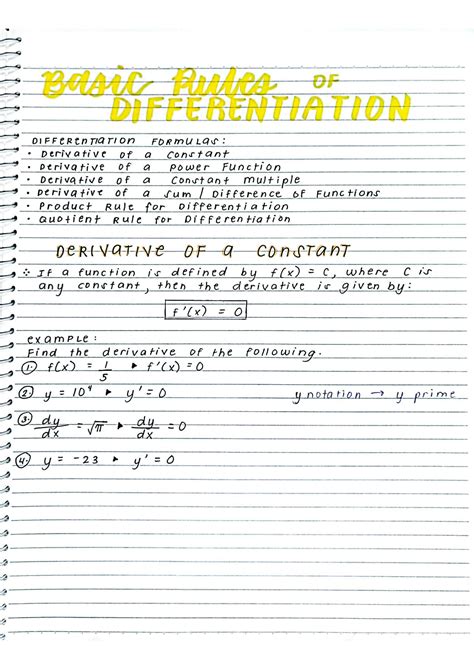 Basic Rules OF
DIFFERENTIATION
DIFFERENTIATION FORMULAS:
• Derivative of a Constant
• Derivative of a Power Function
• Derivative of a Constant Multiple
• Derivative of a Sum / Difference of Functions
• Product Rule for Differentiation
• Quotient Rule for Differentiation
DERIVATIVE OF A CONSTANT
∴ If a function is defined by f(x) = C, where C is
any constant, then the derivative is given by:
f'(x) = 0
example:
Find the derivative of the following.
①. f(x) = 1/5 ▸ f'(x) = 0
② y = 10⁴ ▸ y' = 0 y notation → y prime
③. dy/dx = √π ▸ dy/dx = 0
④. y = -23 ▸ y' = 0